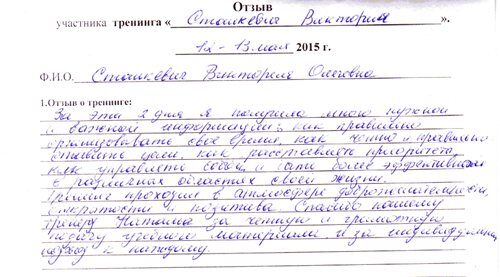 Отзыв
участника тренинга « Сташкевич Виктории ».
12 - 13 мая 2015 г.
Ф.И.О. Сташкевич Виктория Олеговна
1.Отзыв о тренинге:
За эти 2 дня я получила много нужной
и важной информации: как правильно
организовывать своё время, как чётко и правильно
ставить цели, как расставлять приоритеты,
как управлять собой, и быть более эффективной
в различных областях своей жизни.
Тренинг проходил в атмосфере доброжелательности,
открытости и позитива. Спасибо нашему
тренеру Наталии за чёткую и грамотную
подачу учебного материала и за индивидуальный
подход к каждому.